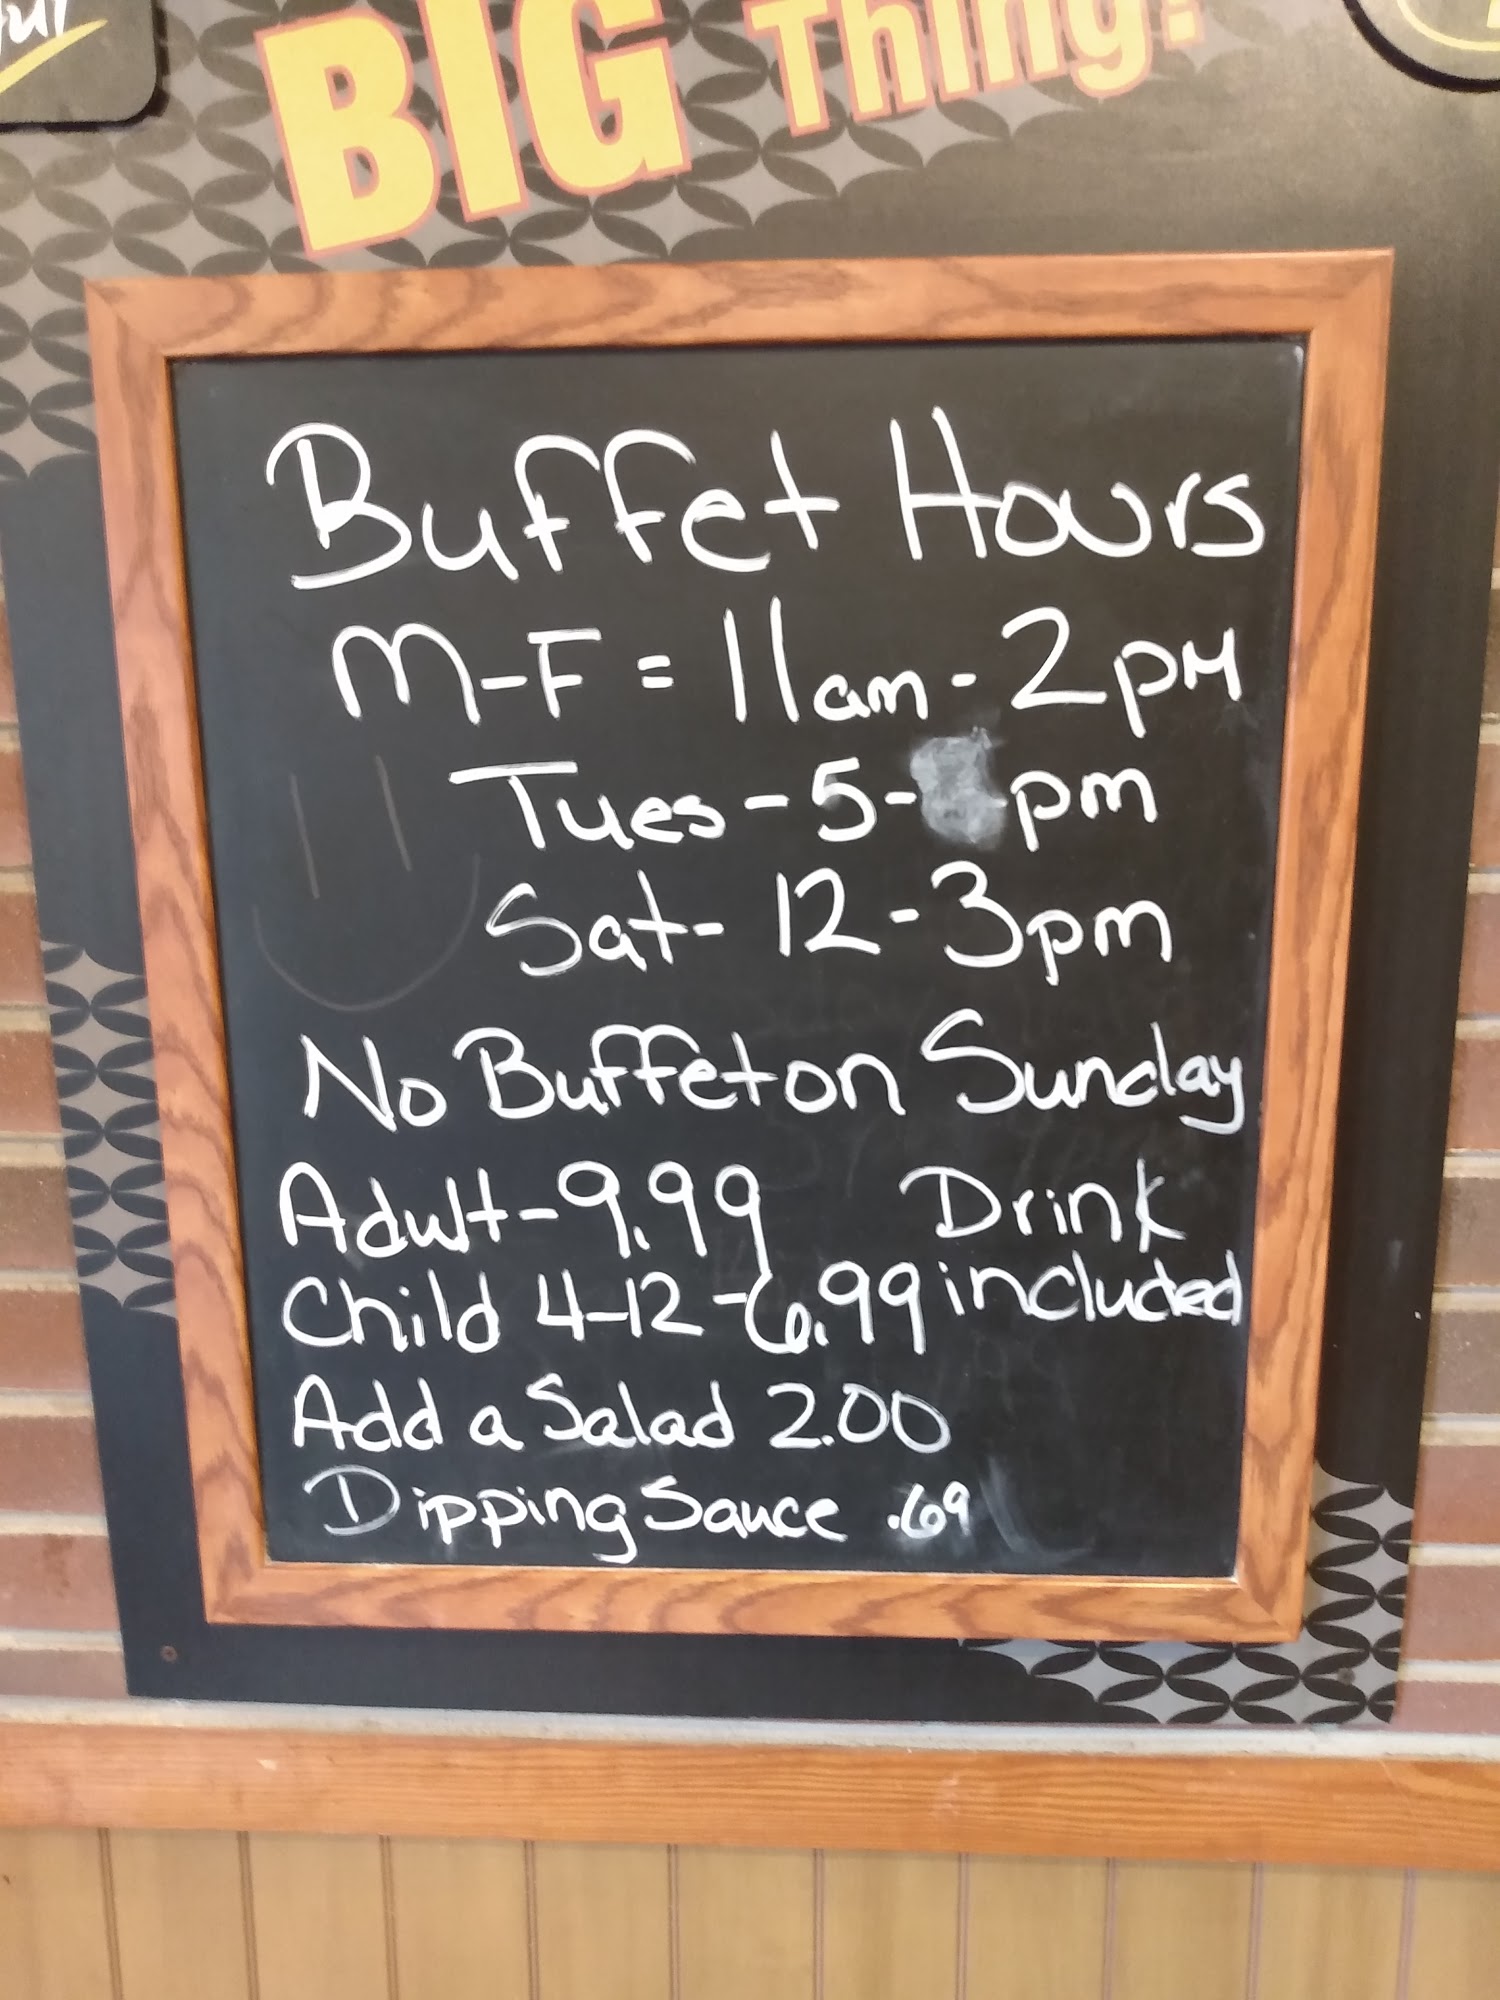 BIG Thing!
Buffet Hours
M-F = 11am - 2pM
Tues - 5- pm
Sat- 12 - 3pm
No Buffet on Sunday
Adult - 9.99 Drink
Child 4-12 - 6.99 included
Add a Salad 2.00
Dipping Sauce .69